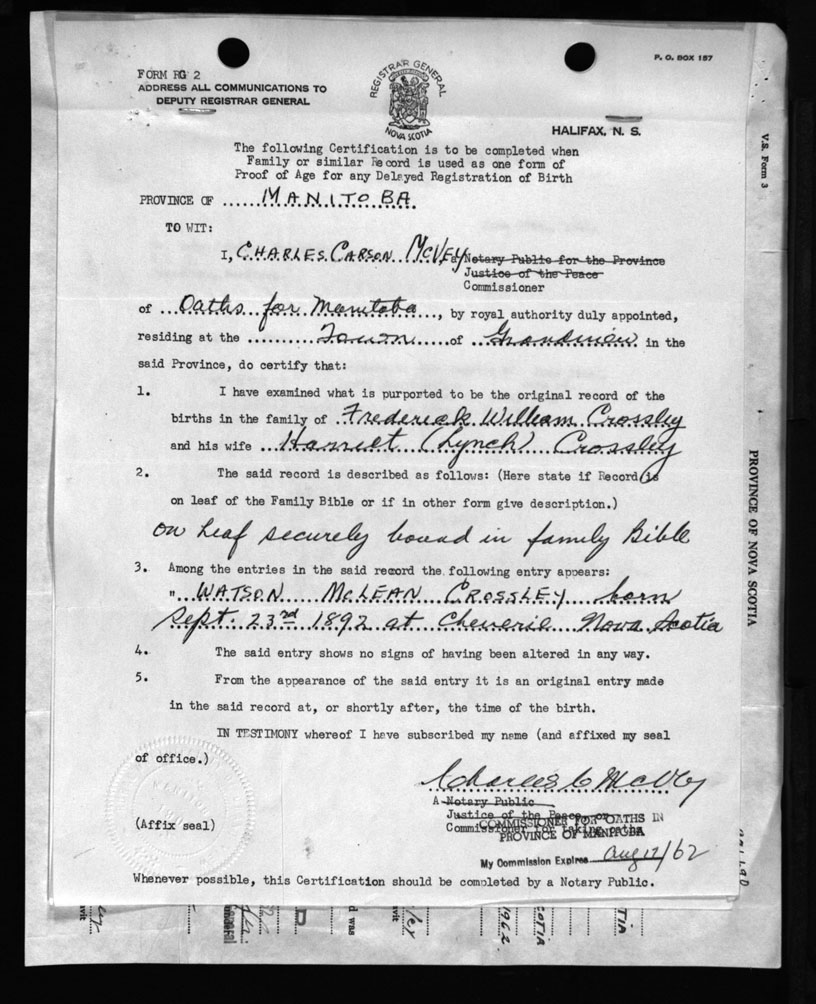 P. O. BOX 157
FORM RG 2
ADDRESS ALL COMMUNICATIONS TO
DEPUTY REGISTRAR GENERAL
REGISTRAR GENERAL
NOVA SCOTIA
HALIFAX, N. S.
V.S. Form 3
The following Certification is to be completed when
Family or similar Record is used as one form of
Proof of Age for any Delayed Registration of Birth
PROVINCE OF ......MANITOBA
TO WIT:
I, CHARLES CARSON McVEY, a Notary Public for the Province
Justice of the Peace
Commissioner
of ...Oaths for Manitoba..., by royal authority duly appointed,
residing at the ..........Town......of ..Grandview.. in the
said Province, do certify that:
1. I have examined what is purported to be the original record of the
births in the family of Frederick William Crossley
and his wife ..Harriet (Lynch) Crossley
2. The said record is described as follows: (Here state if Record is
on leaf of the Family Bible or if in other form give description.)
on leaf securely bound in family Bible
3. Among the entries in the said record the following entry appears:
"..WATSON McLEAN CROSSLEY born
Sept. 23rd 1892 at Cheverie Nova Scotia
PROVINCE OF NOVA SCOTIA
4. The said entry shows no signs of having been altered in any way.
5. From the appearance of the said entry it is an original entry made
in the said record at, or shortly after, the time of the birth.
IN TESTIMONY whereof I have subscribed my name (and affixed my seal
of office.)
Charles C McVey
A Notary Public
Justice of the Peace, or
Commissioner for taking oaths
COMMISSIONER FOR OATHS IN
PROVINCE OF MANITOBA
(Affix seal)
My Commission Expires Aug 12/62
Whenever possible, this Certification should be completed by a Notary Public.
d was
1962
COTIA
TIA